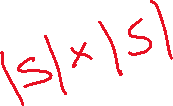 |S| × |S|